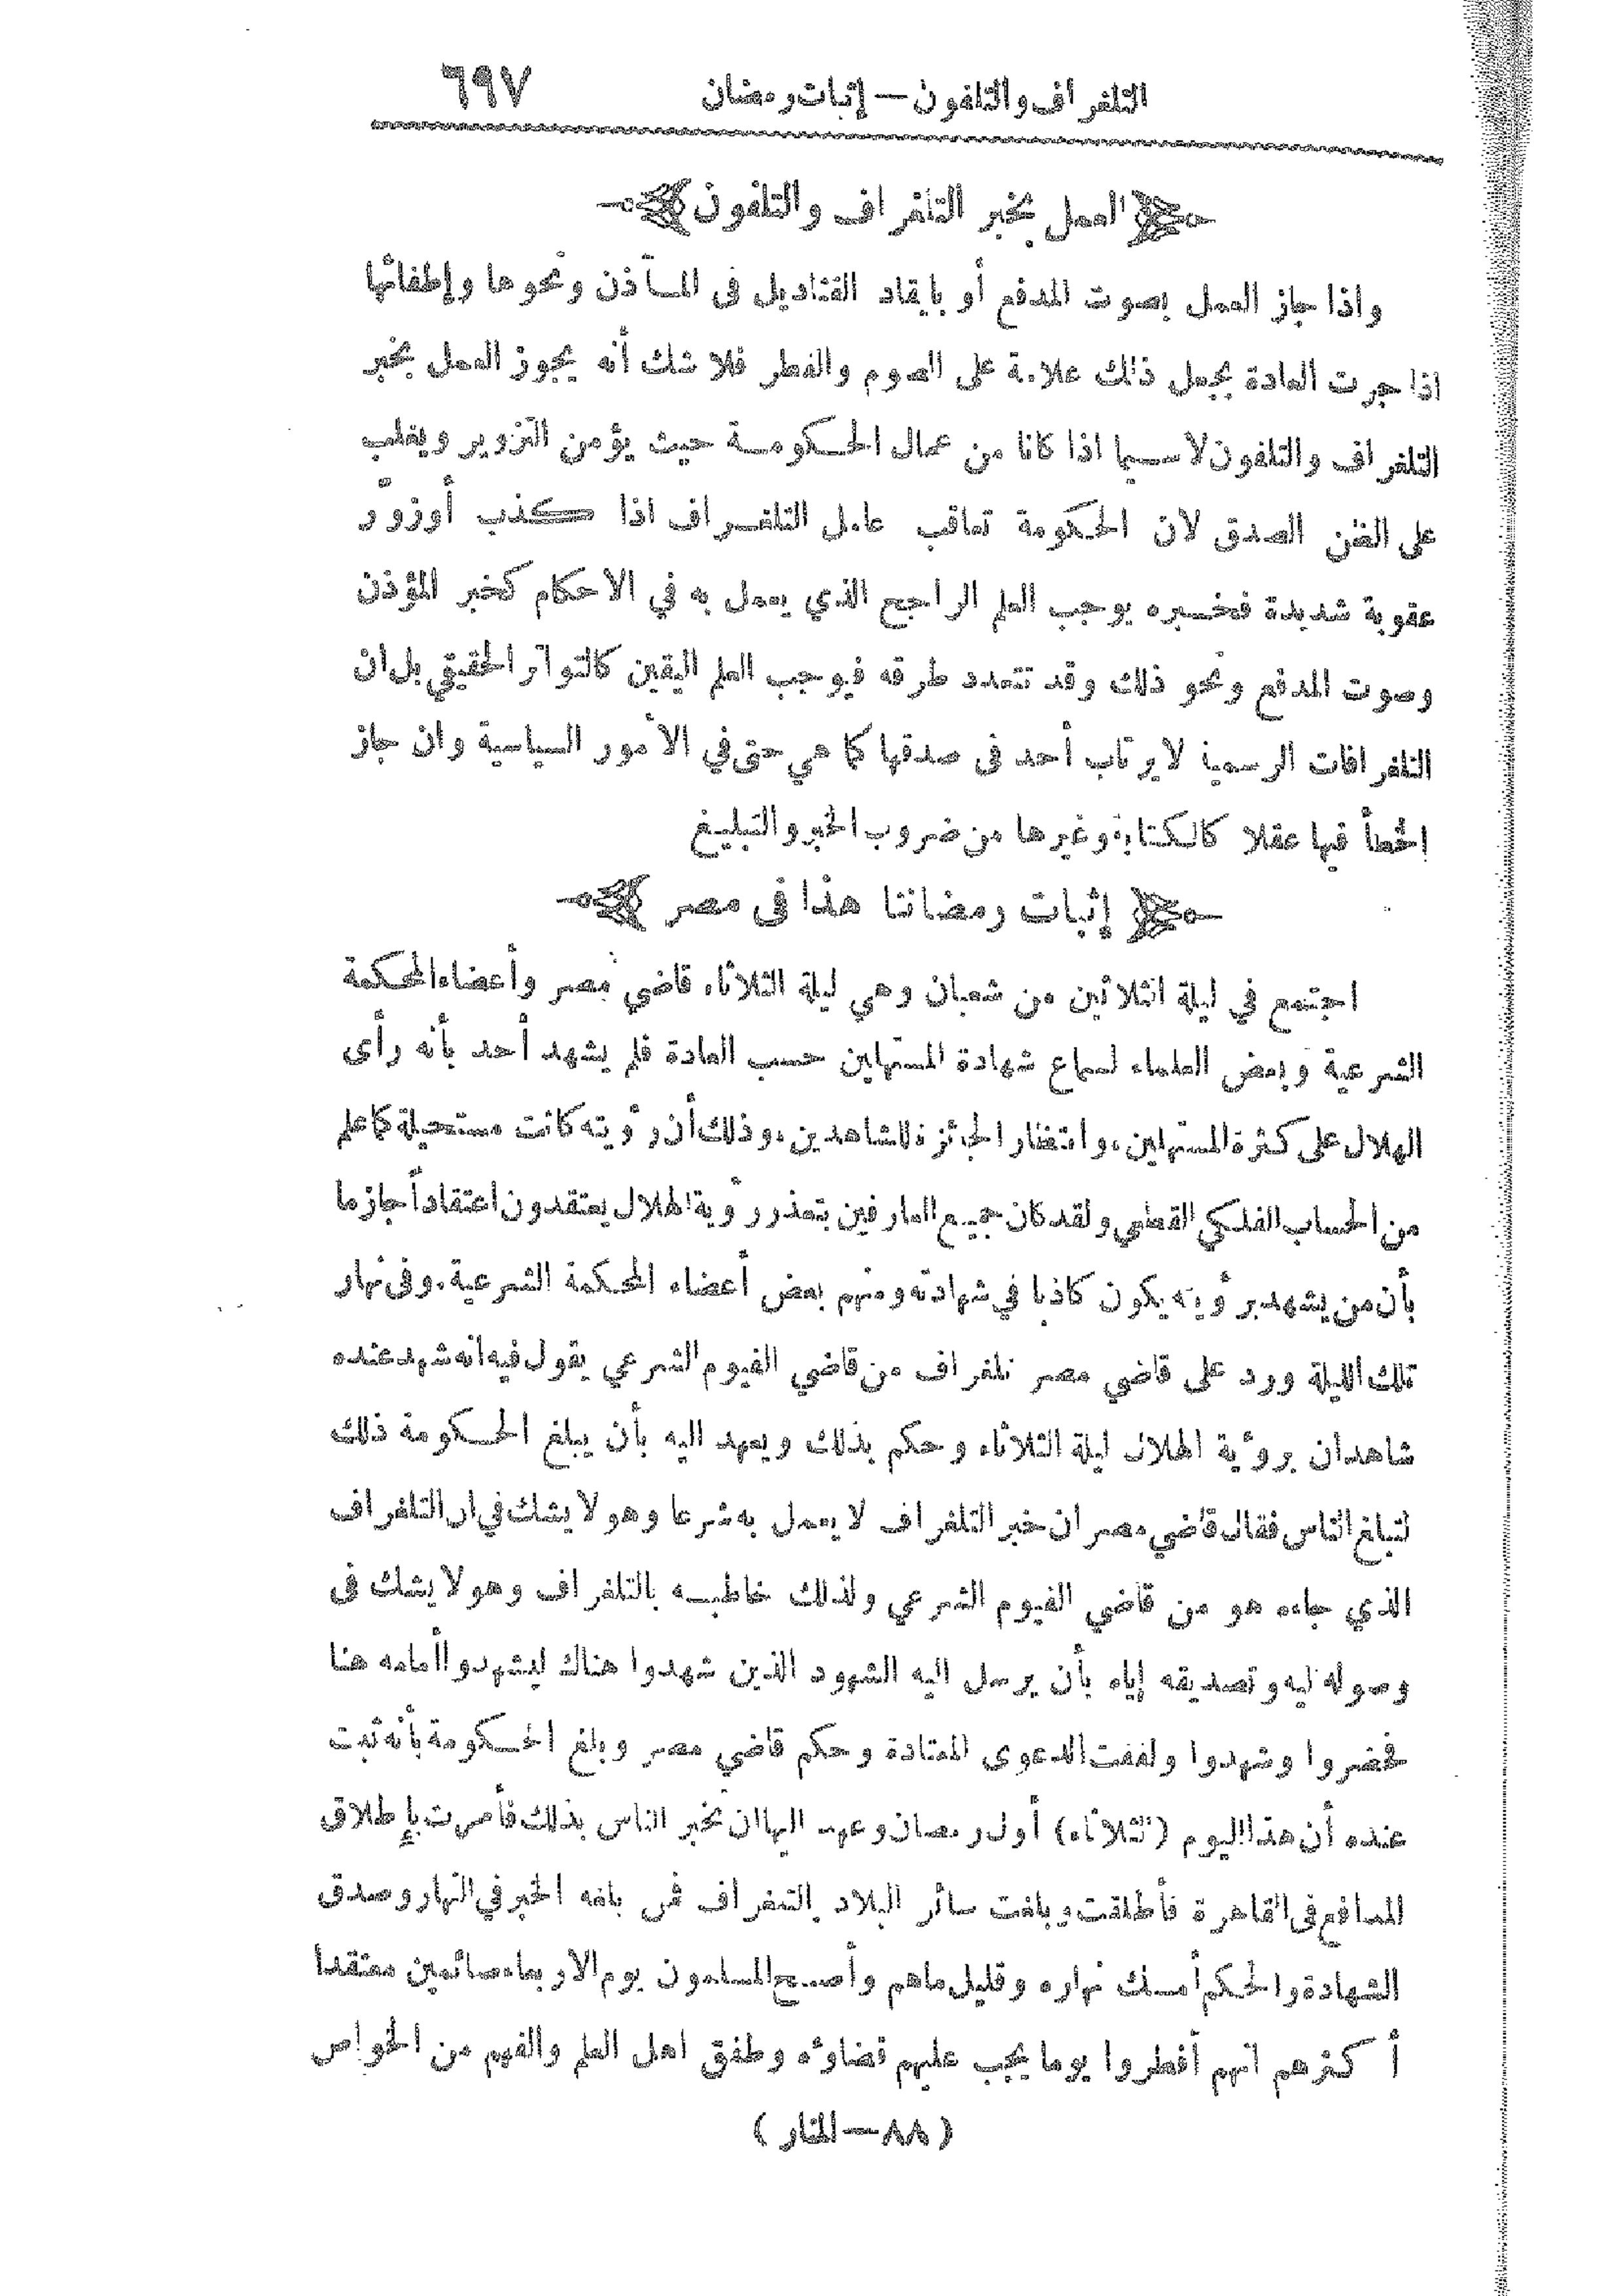 التلغراف والتلفون — إثبات رمضان ٦٩٧
العمل بخبر التلغراف والتلفون
واذا جاز العمل بصوت المدفع أو بايقاد القناديل فى المآذن ونحوها وإطفائها
اذا جرت العادة بجعل ذلك علامة على الصوم والفطر فلا شك أنه يجوز العمل بخبر
التلغراف والتلفون لا سيما اذا كانا من عمال الحكومة حيث يؤمن التزوير ويغلب
على الظن الصدق لان الحكومة تعاقب عامل التلغراف اذا كذب أو زوّر
عقوبة شديدة فخبره يوجب العلم الراجح الذي يعمل به في الاحكام كخبر المؤذن
وصوت المدفع ونحو ذلك وقد تتعدد طرقه فيوجب العلم اليقين كالتواتر الحقيقي بل ان
التلغرافات الرسمية لا يرتاب أحد فى صدقها كما هي حتى في الأمور السياسية وان جاز
الخطأ فيها عقلا كالكتابة وغيرها من ضروب الخبر والتبليغ
إثبات رمضاننا هذا فى مصر
اجتمع في ليلة الثلاثين من شعبان وهي ليلة الثلاثاء قاضي مصر وأعضاء المحكمة
الشرعية وبعض العلماء لسماع شهادة المستهلين حسب العادة فلم يشهد أحد بأنه رأى
الهلال على كثرة المستهلين، وانتظار الجائزة للشاهدين، وذلك أن رؤيته كانت مستحيلة كما علم
من الحساب الفلكي القطعي ولقد كان جميع العارفين بتعذر رؤية الهلال يعتقدون اعتقاداً جازما
بأن من يشهد برؤيته يكون كاذبا في شهادته ومنهم بعض أعضاء المحكمة الشرعية. وفى نهار
تلك الليلة ورد على قاضي مصر تلغراف من قاضي الفيوم الشرعي يقول فيه انه شهد عنده
شاهدان برؤية الهلال ليلة الثلاثاء وحكم بذلك ويعهد اليه بأن يبلغ الحكومة ذلك
لتبلغ الناس فقال قاضي مصر ان خبر التلغراف لا يعمل به شرعا وهو لا يشك في ان التلغراف
الذي جاءه هو من قاضي الفيوم الشرعي ولذلك خاطبه بالتلغراف وهو لا يشك فى
وصوله اليه وتصديقه إياه بأن يرسل اليه الشهود الذين شهدوا هناك ليشهدوا أمامه هنا
فحضروا وشهدوا ولفقت الدعوى المعتادة وحكم قاضي مصر وبلغ الحكومة بأنه ثبت
عنده أن هذا اليوم (الثلاثاء) أول رمضان وعهد اليها ان تخبر الناس بذلك فأمرت بإطلاق
المدافع فى القاهرة فأطلقت وبلغت سائر البلاد بالتلغراف فمن بلغه الخبر في النهار وصدق
الشهادة والحكم أمسك نهاره وقليل ماهم وأصبح المسلمون يوم الاربعاء صائمين معتقدا
أكثرهم انهم أفطروا يوما يجب عليهم قضاؤه وطفق اهل العلم والفهم من الخواص
(٨٨ — المنار)